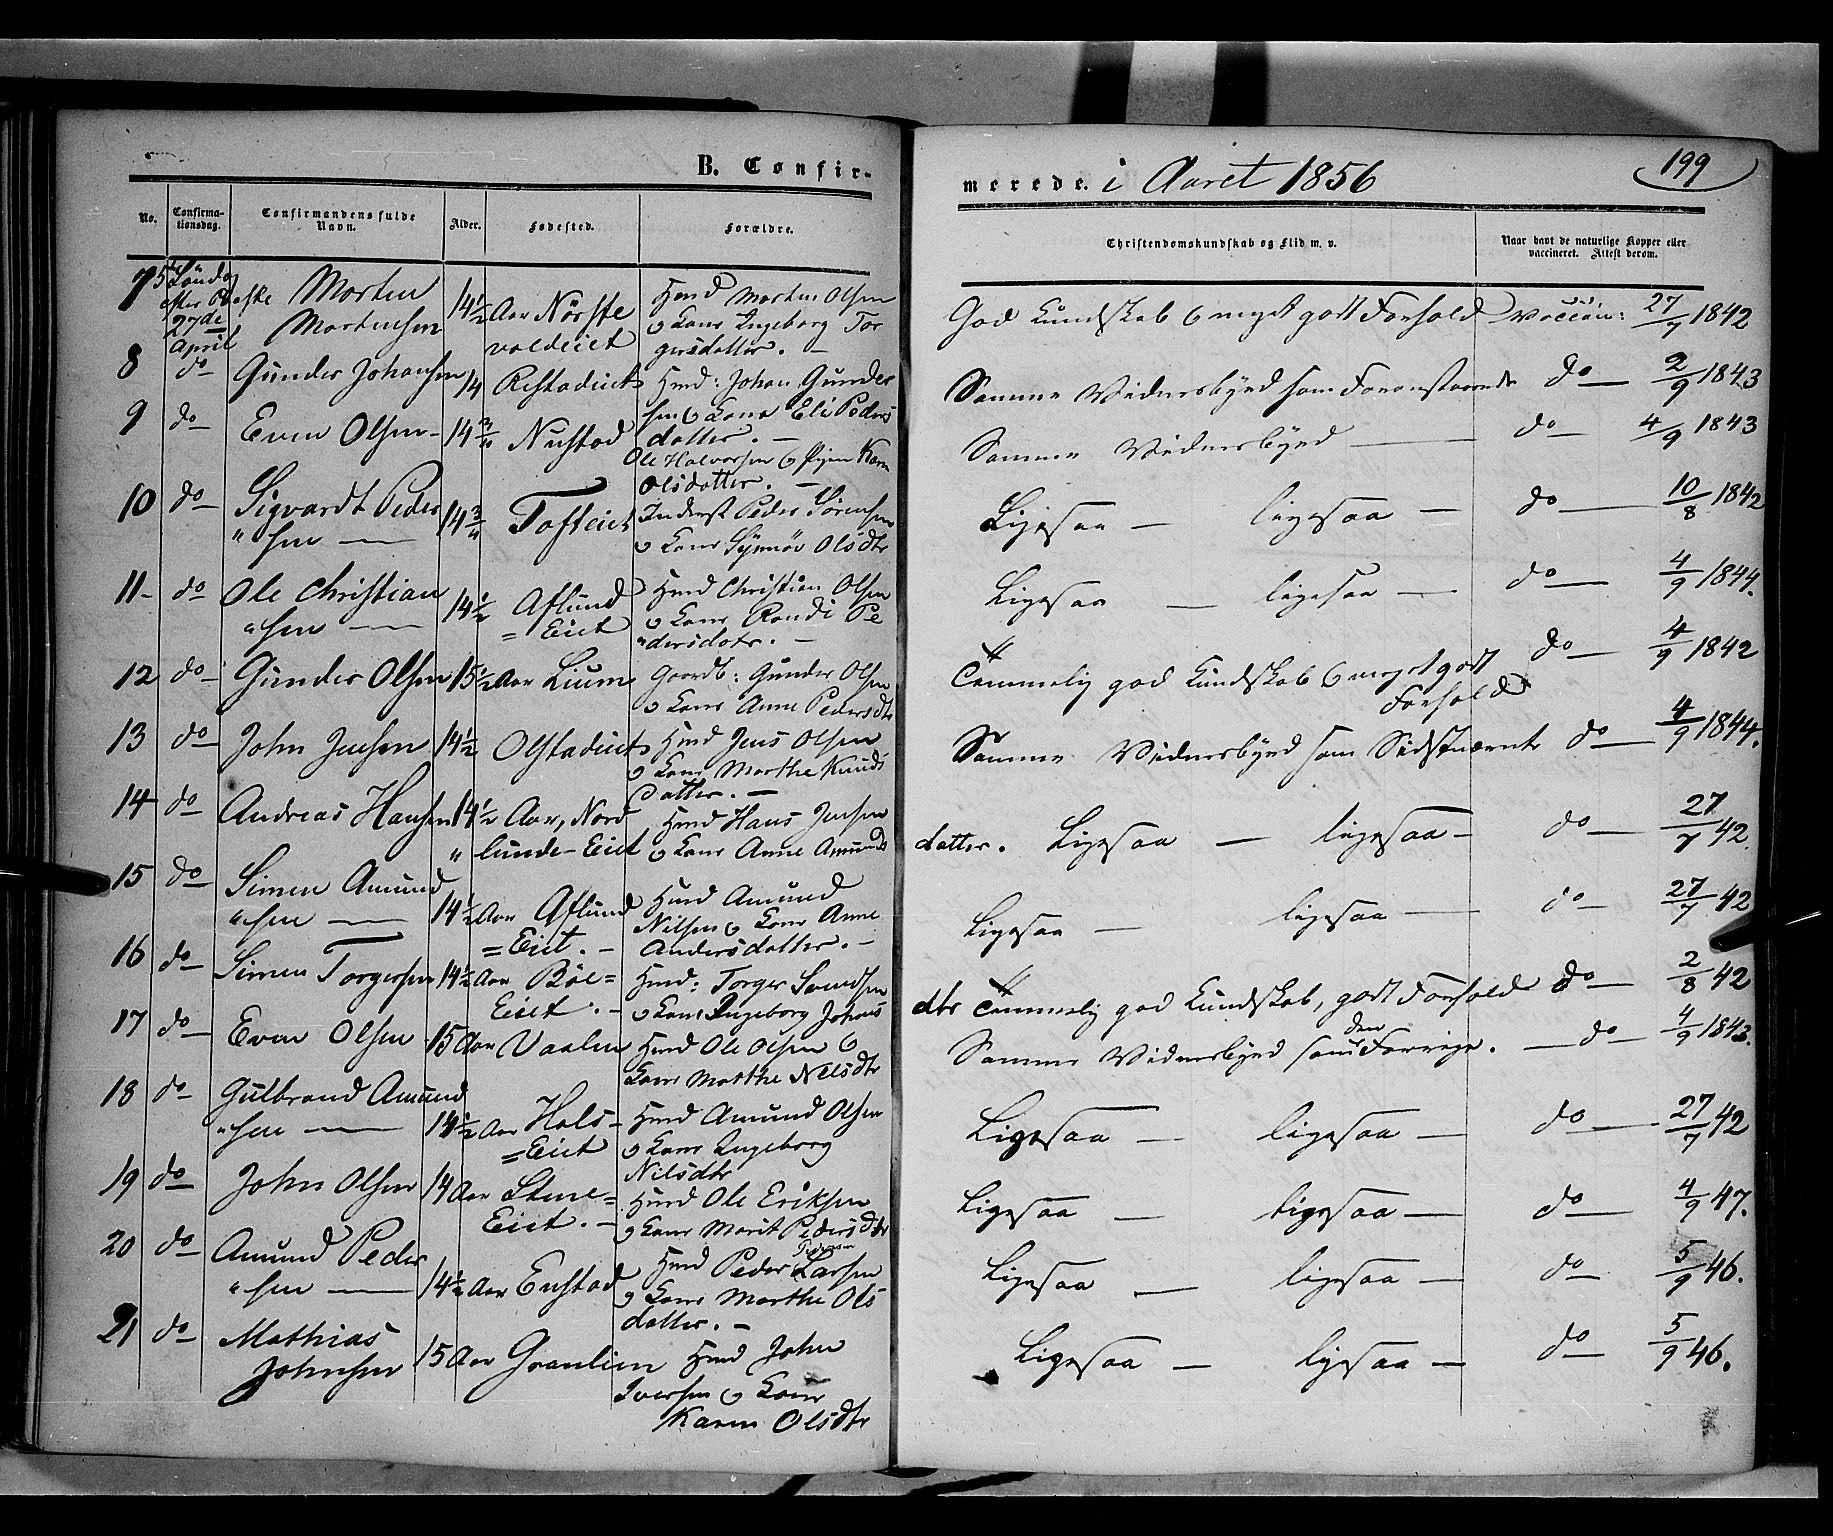 B. Confir-
merede. i Aaret 1856
199
No.
Confirma-
tionsdag.
Confirmandens fulde
Navn.
Alder.
Fødested.
Forældre.
Christendomskundskab og Flid m. v.
Naar havt de naturlige Kopper eller
vaccineret. Attest derom.
7 5te Søndag
efter Paaske
27de
April
Morten
Mortensen
14½ Aar Nörste
voldeiet
Hmd Morten Olsen
o Kone Ingeborg Tor
gersdatter. -
God Kundskab o meget godt Forhold vaccin: 27/7 1842
8 do Gunder Johansen 14 Restadeiet
Hmd: Johan Gunder
sen o Kone Eli Peders
datter. -
Samme Vidnesbyrd som Foranstaaende do 2/9 1843
9 do Even Olsen 14¾ Nustad
Ole Halvorsen o Karn
Olsdatter. -
Samme Vidnesbyrd do 4/9 1843
10 do Sigvardt Peder
"sen 14¾ Tofteiet
Inderst Peder Sörensen
o Kone Synnöv Olsdtr
Ligesaa - ligesaa - do 10/8 1842
11- do Ole Christian
"sen 14½ Aflund
=Eiet
Hmd Christian Olsen
o Kone Randi Pe
"dersdatr. -
Ligesaa - ligesaa - do 4/9 1844.
12 do Gunder Olsen 15½ Aar Lium
Gaardb: Gunder Olsen
o Kone Anne Pedersdtr
Temmelig god Kundskab o meget godt
Forhold
do 4/9 1842
13 do John Jensen 14½ Olstadeiet
Hmd Jens Olsen
o Kone Marthe Knuds
datter. -
Samme Vidnesbyrd som Sidstnævnte do 4/9 1844.
14 do Andreas Hansen 14½ Aar, Nord
"lunde-Eiet
Hmd Hans Jensen
o Kone Anne Amunds
datter. Ligesaa - ligesaa - do 27/7 42.
15 do Simen Amund
"sen 14½ Aar Aflund
=Eiet. -
Hmd Amund
Nilsen o Kone Anne
Andersdatter. -
Ligesaa - ligesaa do 27/7 42
16 do Simen Torgersen 14½ Aar Böe=
Eiet. -
Hmd: Torger Svendsen
o Kone Ingeborg Johans
dtr Temmelig god Kundskab, godt Forhold do 2/8 42
17 do Even Olsen 15 Aar Vaalen
Hmd Ole Olsen o
Kone Marthe Nilsdtr
Samme Vidnesbyrd som den Forrige. - do 4/9 1843.
18 do Gulbrand Amund
"sen 14½ Aar Hols-
=Eiet
Hmd Amund Olsen
o Kone Ingeborg
Nilsdtr
Ligesaa - ligesaa - do 27/7 42
19 do John Olsen 14 Aar Stene=
Eiet. -
Hmd Ole Eriksen
o Kone Marit Pedersdtr
Ligesaa - ligesaa - do 4/9 47.
20 do Amund Peder
"sen 14½ Aar Enstad
Hmd Peder Larsen
o Kone Marthe Ols
datter. -
Ligesaa - ligesaa - do 5/9 46.
21 do Mathias
Johnsen 15 Aar Granlien
Hmd John
Iversen o Kone
Karen Olsdtr
Ligesaa - ligesaa - do 5/9 46.